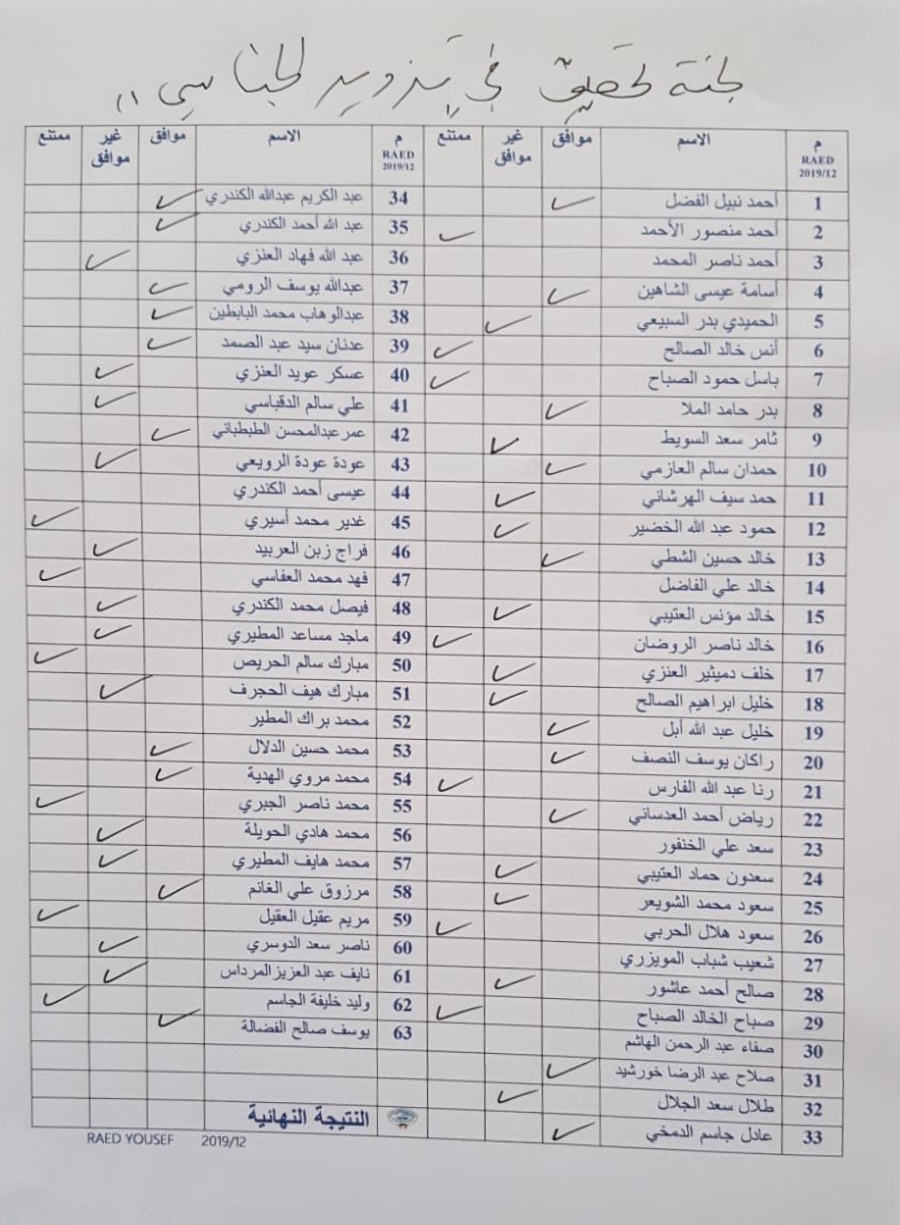 لجنة تحقيق في تزوير الجناسي
م RAED 2019/12 الاسم موافق غير موافق ممتنع
1 أحمد نبيل الفضل ✓
2 أحمد منصور الأحمد ✓
3 أحمد ناصر المحمد
4 أسامة عيسى الشاهين ✓
5 الحميدي بدر السبيعي ✓
6 أنس خالد الصالح ✓
7 باسل حمود الصباح ✓
8 بدر حامد الملا ✓
9 ثامر سعد السويط ✓
10 حمدان سالم العازمي ✓
11 حمد سيف الهرشاني ✓
12 حمود عبد الله الخضير ✓
13 خالد حسين الشطي ✓
14 خالد علي الفاضل
15 خالد مؤنس العتيبي ✓
16 خالد ناصر الروضان ✓
17 خلف دميثير العنزي ✓
18 خليل ابراهيم الصالح ✓
19 خليل عبد الله أبل ✓
20 راكان يوسف النصف ✓
21 رنا عبد الله الفارس ✓
22 رياض أحمد العدساني ✓
23 سعد علي الخنفور
24 سعدون حماد العتيبي ✓
25 سعود محمد الشويعر ✓
26 سعود هلال الحربي ✓
27 شعيب شباب المويزري
28 صالح أحمد عاشور ✓
29 صباح الخالد الصباح ✓
30 صفاء عبد الرحمن الهاشم
31 صلاح عبد الرضا خورشيد ✓
32 طلال سعد الجلال ✓
33 عادل جاسم الدمخي ✓
م RAED 2019/12 الاسم موافق غير موافق ممتنع
34 عبد الكريم عبدالله الكندري ✓
35 عبد الله أحمد الكندري ✓
36 عبد الله فهاد العنزي ✓
37 عبدالله يوسف الرومي ✓
38 عبدالوهاب محمد البابطين ✓
39 عدنان سيد عبد الصمد ✓
40 عسكر عويد العنزي ✓
41 علي سالم الدقباسي ✓
42 عمر عبدالمحسن الطبطبائي ✓
43 عودة عودة الرويعي ✓
44 عيسى أحمد الكندري
45 غدير محمد أسيري ✓
46 فراج زبن العربيد ✓
47 فهد محمد العفاسي ✓
48 فيصل محمد الكندري ✓
49 ماجد مساعد المطيري ✓
50 مبارك سالم الحريص ✓
51 مبارك هيف الحجرف ✓
52 محمد براك المطير
53 محمد حسين الدلال ✓
54 محمد مروي الهدية ✓
55 محمد ناصر الجبري ✓
56 محمد هادي الحويلة ✓
57 محمد هايف المطيري ✓
58 مرزوق علي الغانم ✓
59 مريم عقيل العقيل ✓
60 ناصر سعد الدوسري ✓
61 نايف عبد العزيز المرداس ✓
62 وليد خليفة الجاسم ✓
63 يوسف صالح الفضالة ✓
النتيجة النهائية
RAED YOUSEF 2019/12